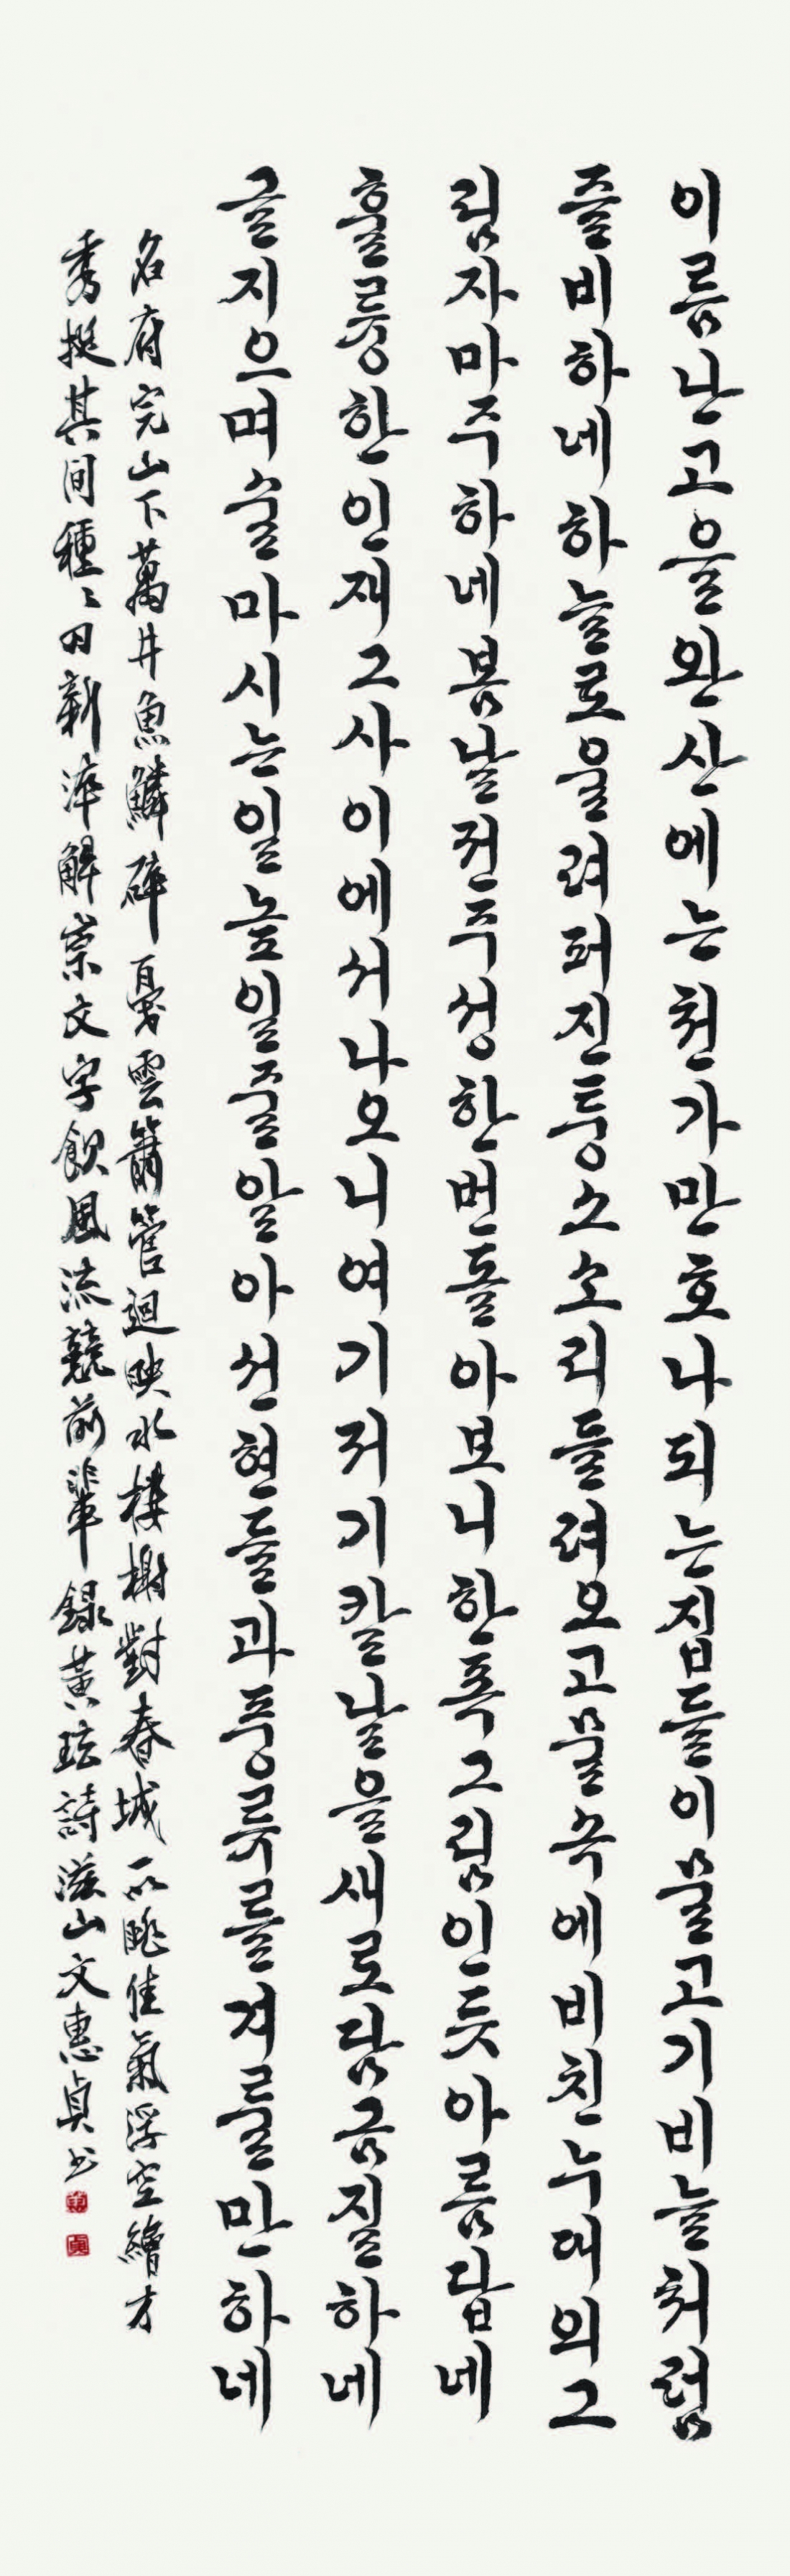 이름난고을완산에는천가만호나되는집들이물고기비늘처럼
즐비하네하늘로울려퍼진퉁소소리들려오고물속에비친누대의그
림자마주하네봄날전주성한번돌아보니한폭그림인듯아름답네
훌륭한인재그사이에서나오니여기저기칼날을새로담금질하네
글지으며술마시는일높일줄알아선현들과풍류를겨룰만하네
名府完山下萬井魚鱗碎戞雲簫管迥映水樓榭對春城一眺佳氣浮空繪才
秀挺其間種〻刃新淬解崇文字飮風流競前輩 錄黃玹詩 滋山文惠貞书